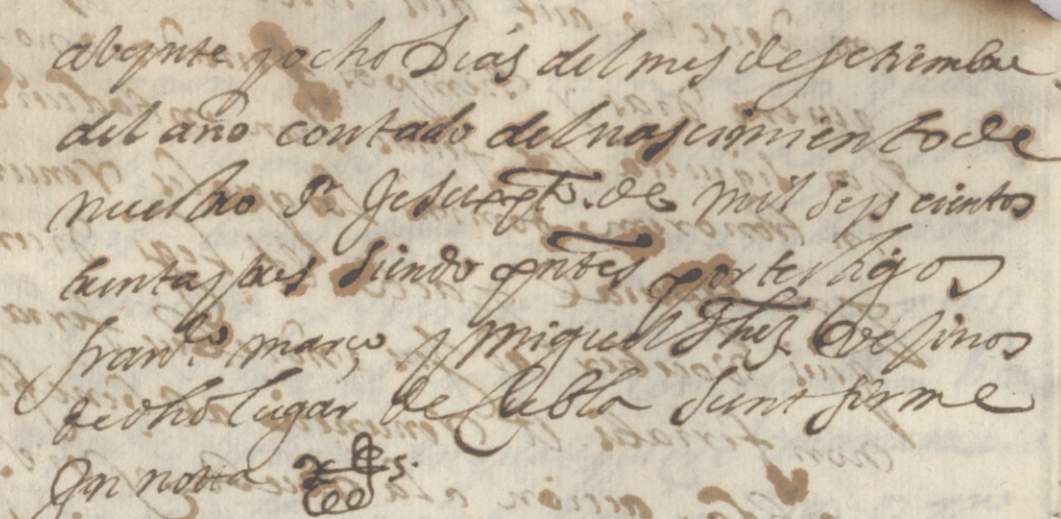 abeynte y ocho Dias del mes de setiembre
del año contado del nascimiento de
nuestro Sr. Jesuxpto. de mil seys cientos
trenta y tres siendo pntes por testigos
franco. março y Miguel Vecinos
de dho lugar de Puebla Sunt firme
In notta